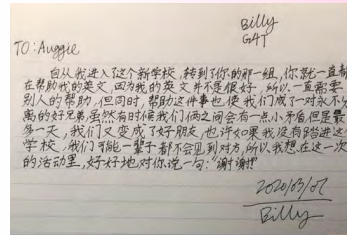 Billy
G4T
TO: Auggie
自从我进入了这个新学校,转到了你的那一组,你就一直都
在帮助我的英文,因为我的英文并不是很好,所以一直需要
别人的帮助,但同时,帮助这件事也使我们成了一对永不分
离的好兄弟,虽然有时候我们俩之间会有一点小矛盾但是最
多一天,我们又变成了好朋友,也许如果我没有踏进这
学校,我们可能一辈子都不会见到对方,所以,我想在这一次
的活动里,好好地对你说一句:“谢谢!”
2020/03/07
Billy